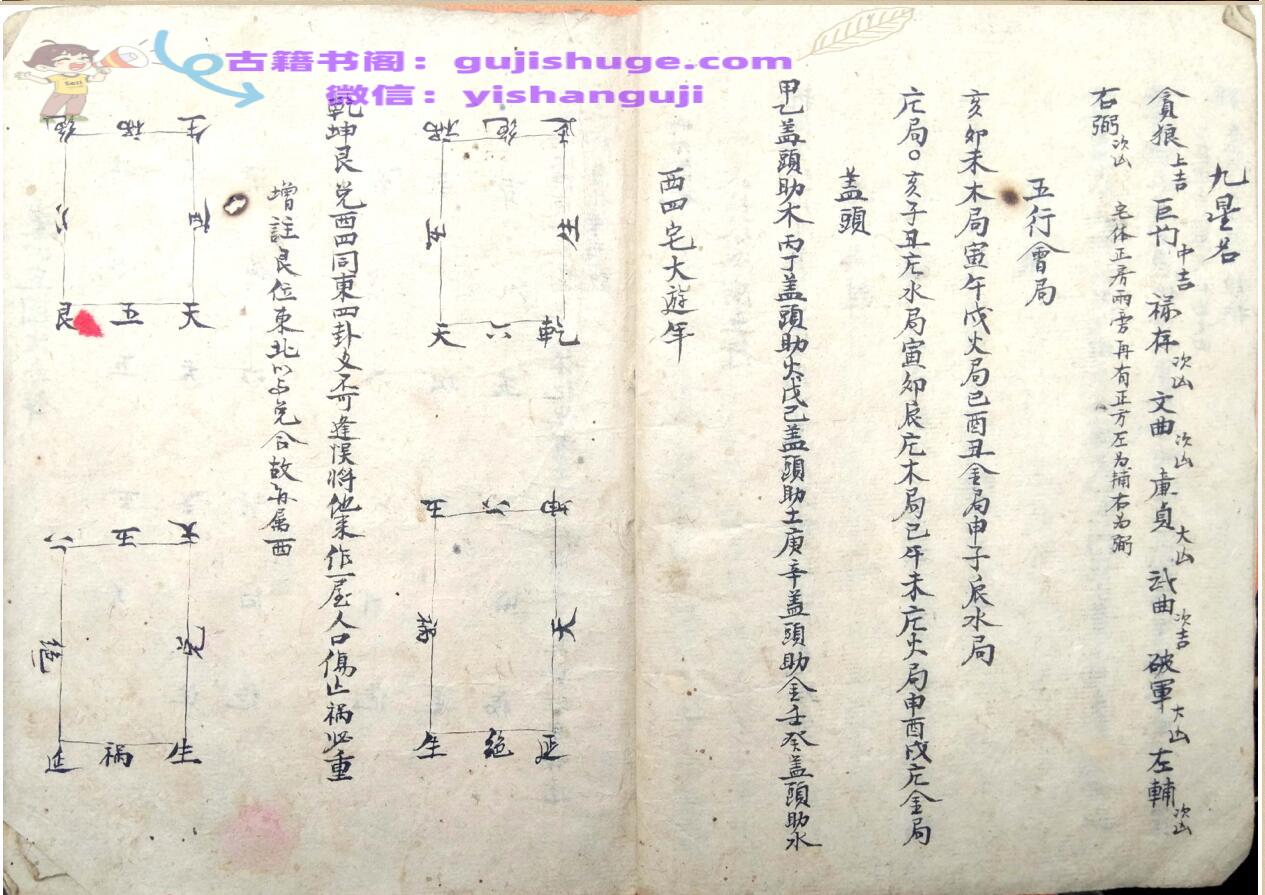 古籍书阁：gujishuge.com
微信：yishanguji
九星名
貪狼上吉 巨门中吉 祿存次凶 文曲次凶 廉貞大凶 武曲次吉 破軍大凶 左輔次凶
右弼次凶 宅体正房兩旁再有正方左为輔右为弼
五行會局
亥卯未木局寅午戌火局巳酉丑金局申子辰水局
庄局。亥子丑庄水局寅卯辰庄木局巳午未庄火局申酉戌庄金局
盖頭
甲乙盖頭助木丙丁盖頭助火戊己盖頭助土庚辛盖頭助金壬癸盖頭助水
西四宅大遊年
延 绝 祸
生 五
乾 六 天
坤 六 五
天 祸
延 绝 生
乾坤艮兑西四同東四卦爻不可逢悞將他来作一屋人口傷亡祸必重
增註艮位東北以与兑合故亦属西
生 祸 绝
延 六
天 五 艮
天 五 六
兑 绝
生 祸 延